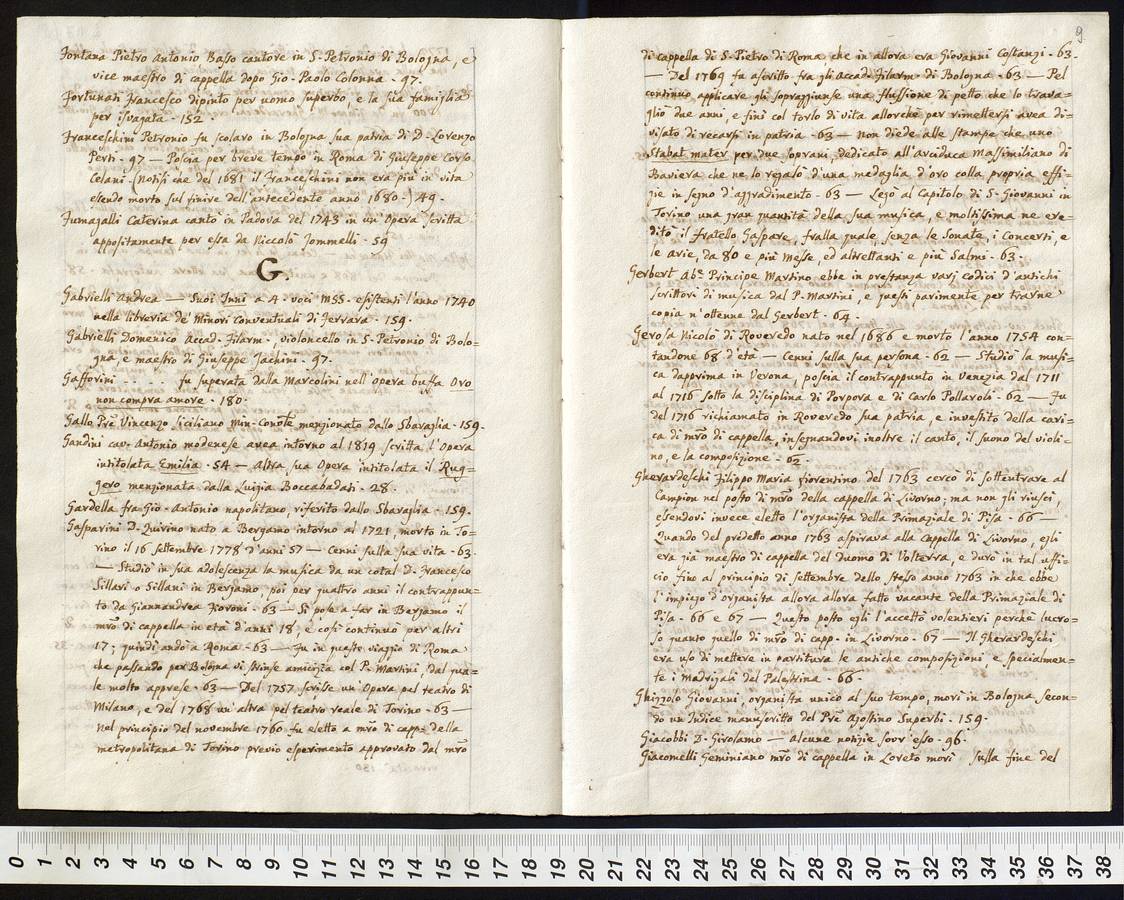 Fontana Pietro Antonio, Basso cantore in S. Petronio di Bologna, e
vice maestro di cappella dopo Gio. Paolo Colonna - 97.
Fortunati Francesco dipinto per uomo superbo, e la sua famiglia
per isvagata - 152
Franceschini Petronio fu scolaro in Bologna sua patria di D. Lorenzo
Perti - 97 — Poscia per breve tempo in Roma di Giuseppe Corso
Celani - (Notisi che del 1681 il Franceschini non era più in vita
essendo morto sul finire dell'antecedente anno 1680 -) 49 -
Fumagalli Caterina cantò in Padova del 1743 in un'Opera scritta
appositamente per essa da Niccolò Jommelli - 59
G.
Gabrielli Andrea — Suoi Inni a 4 - voci MSS - esistenti l'anno 1740
nella libreria de' Minori Conventuali di Ferrara - 159 -
Gabrielli Domenico Accad. Filarm., violoncello in S. Petronio di Bolo=
gna, e maestro di Giuseppe Jachini - 97 -
Gafforini - - - - fu superata dalla Marcolini nell'opera buffa Oro
non compra amore - 180 -
Gallo Prē Vincenzo Siciliano Min. Convtē menzionato dallo Sbaraglia - 159 -
Gandini cav. Antonio modenese avea intorno al 1819 scritta l'Opera
intitolata Emilia - 54 — Altra sua Opera intitolata il Rug=
gero menzionata dalla Luigia Boccabadati - 28 -
Gardella fra Gio. Antonio napolitano, riferito dallo Sbaraglia - 159 -
Gasparini D. Quirino nato a Bergamo intorno al 1721, morto in To=
rino il 16 settembre 1778 d'anni 57 — Cenni sulla sua vita - 63 -
— Studiò in sua adolescenza la musica da un cotal D. Francesco
Sillari o Sillani in Bergamo, poi per quattro anni il contrappun=
to da Giannandrea Fioroni - 63 — Si pose a far in Bergamo il
mrō di cappella in età d'anni 18, e così continuò per altri
17; quindi andò a Roma - 63 — Fu in questo viaggio di Roma
che passando per Bologna vi strinse amicizia col P. Martini, dal qua=
le molto apprese - 63 — Del 1757 scrisse un'Opera pel teatro di
Milano, e del 1768 un'altra pel teatro reale di Torino - 63 —
Nel principio del novembre 1760 fu eletto a mrō di capp. della
metropolitana di Torino previo esperimento approvato dal mrō
9
di cappella di S. Pietro di Roma che in allora era Giovanni Costanzi - 63 -
— Del 1769 fu ascritto fra gli accad. Filarm. di Bologna - 63 — Pel
continuo applicare gli sopraggiunse una flussione di petto che lo trava=
gliò due anni, e finì col torlo di vita allorchè per rimettersi avea di=
visato di recarsi in patria - 63 — Non diede alle stampe che uno
Stabat mater per due soprani, dedicato all'arciduca Massimiliano di
Baviera che ne lo regalò d'una medaglia d'oro colla propria effi=
gie in segno d'aggradimento - 63 — Legò al Capitolo di S. Giovanni in
Torino una gran quantità della sua musica, e moltissima ne ere=
ditò il fratello Gaspare, fralla quale, senza le Sonate, i Concerti, e
le arie, da 80 e più Messe, ed altrettanti e più Salmi - 63 -
Gerbert Abē Principe Martino ebbe in prestanza varj codici d'antichi
scrittori di musica dal P. Martini, e questi parimente per trarne
copia n'ottenne dal Gerbert - 64 -
Gerosa Nicolò di Roveredo nato nel 1686 e morto l'anno 1754 con=
tandone 68 d'età — Cenni sulla sua persona - 62 — Studiò la musi=
ca dapprima in Verona, poscia il contrappunto in Venezia dal 1711
al 1716 sotto la disciplina di Porpora e di Carlo Pollaroli - 62 — Fu
del 1716 richiamato in Roveredo sua patria, e investito della cari=
ca di mrō di cappella, insegnandovi inoltre il canto, il suono del violi=
no, e la composizione - 62 -
Gherardeschi Filippo Maria fiorentino del 1763 cercò di sottentrare al
Campion nel posto di mrō della cappella di Livorno; ma non gli riuscì,
essendovi invece eletto l'organista della Primaziale di Pisa - 66 —
Quando del predetto anno 1763 aspirava alla Cappella di Livorno, egli
era già maestro di cappella del Duomo di Volterra, e durò in tal uffi=
cio fino al principio di settembre dello stesso anno 1763 in che ebbe
l'impiego d'organista allora allora fatto vacante della Primaziale di
Pisa - 66 e 67 — Questo posto egli l'accettò volentieri perchè lucro=
so quanto quello di mrō di capp. in Livorno - 67 — Il Gherardeschi
era uso di mettere in partitura le antiche composizioni, e specialmen=
te i Madrigali del Palestrina - 66 -
Ghizzolo Giovanni, organista unico al suo tempo, morì in Bologna secon=
do un Indice manuscritto del Prē Agostino Superbi - 159 -
Giacobbi D. Girolamo — alcune notizie sovr'esso - 96 -
Giacomelli Geminiano mrō di cappella in Loreto morì sulla fine del
0 1 2 3 4 5 6 7 8 9 10 11 12 13 14 15 16 17 18 19 20 21 22 23 24 25 26 27 28 29 30 31 32 33 34 35 36 37 38